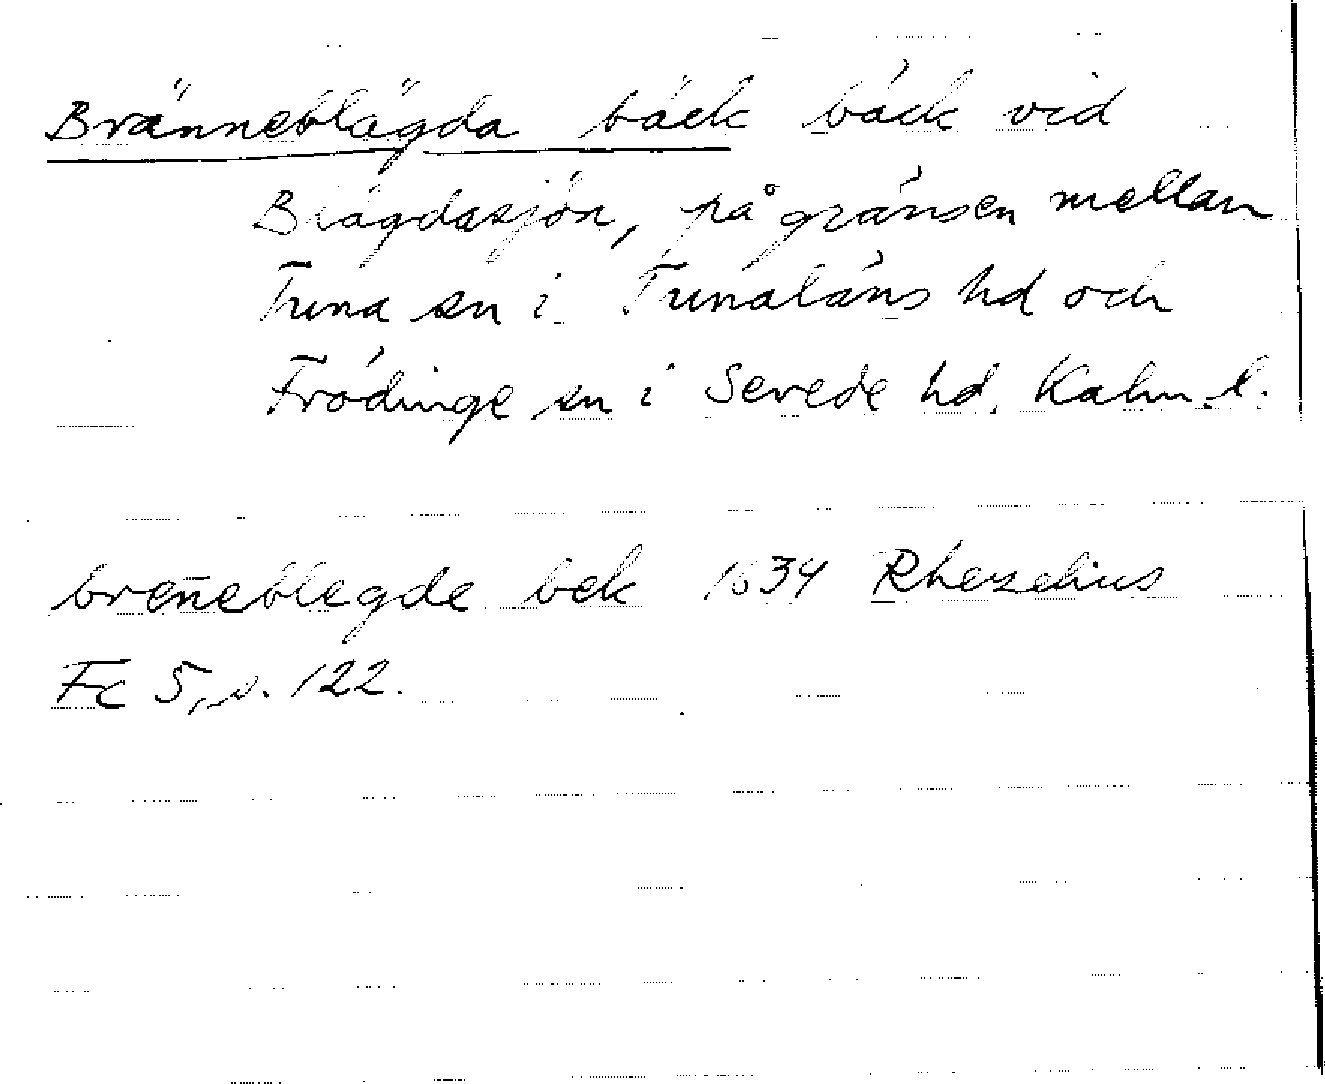 Bränneblägda bäck bäck vid
Blägdasjön, på gränsen mellan
Tuna sn i Tunaläns hd och
Frödinge sn i Sevede hd, Kalm. l.
breñeblegde bek 1634 Rhezelius
Fc 5, s. 122.